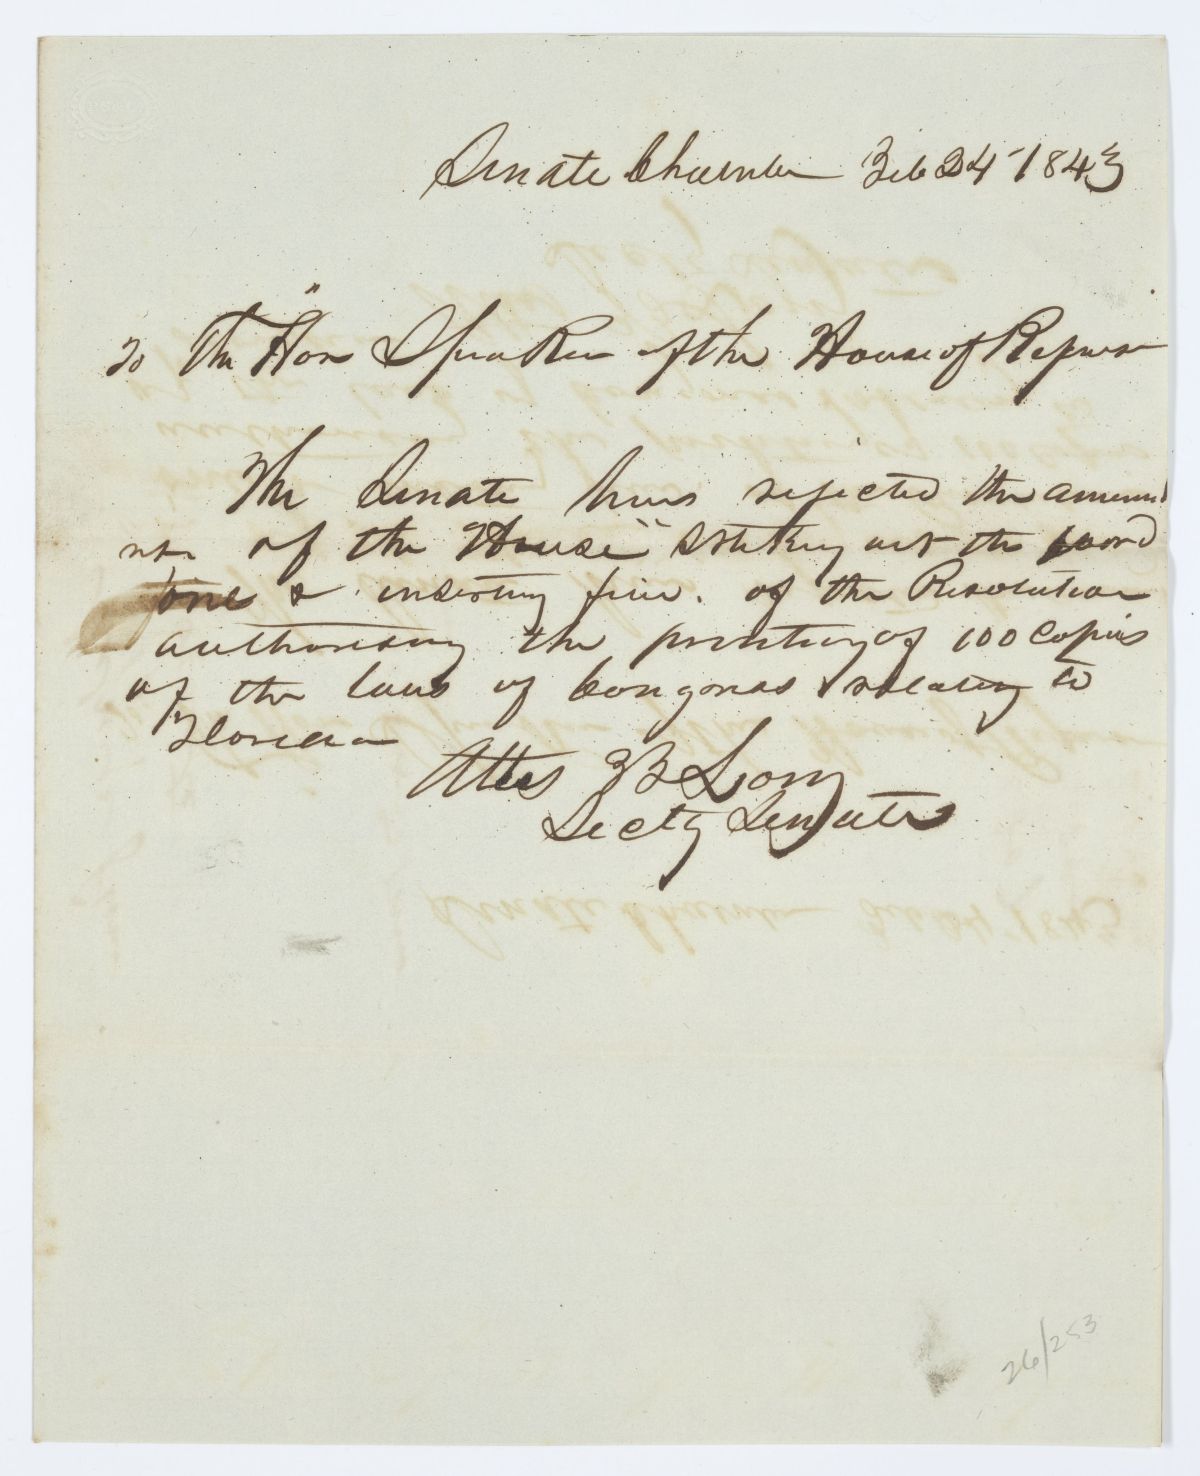 Senate Chamber Feb 24 1843
To The Hon Speaker of the House of Repres
The Senate has rejected the amend
ment of the House Striking out the word
one & inserting five. of the Resolution
authorising the printing of 100 Copies
of the laws of Congress relating to
Florida
Attes
Secty Senate
26/253